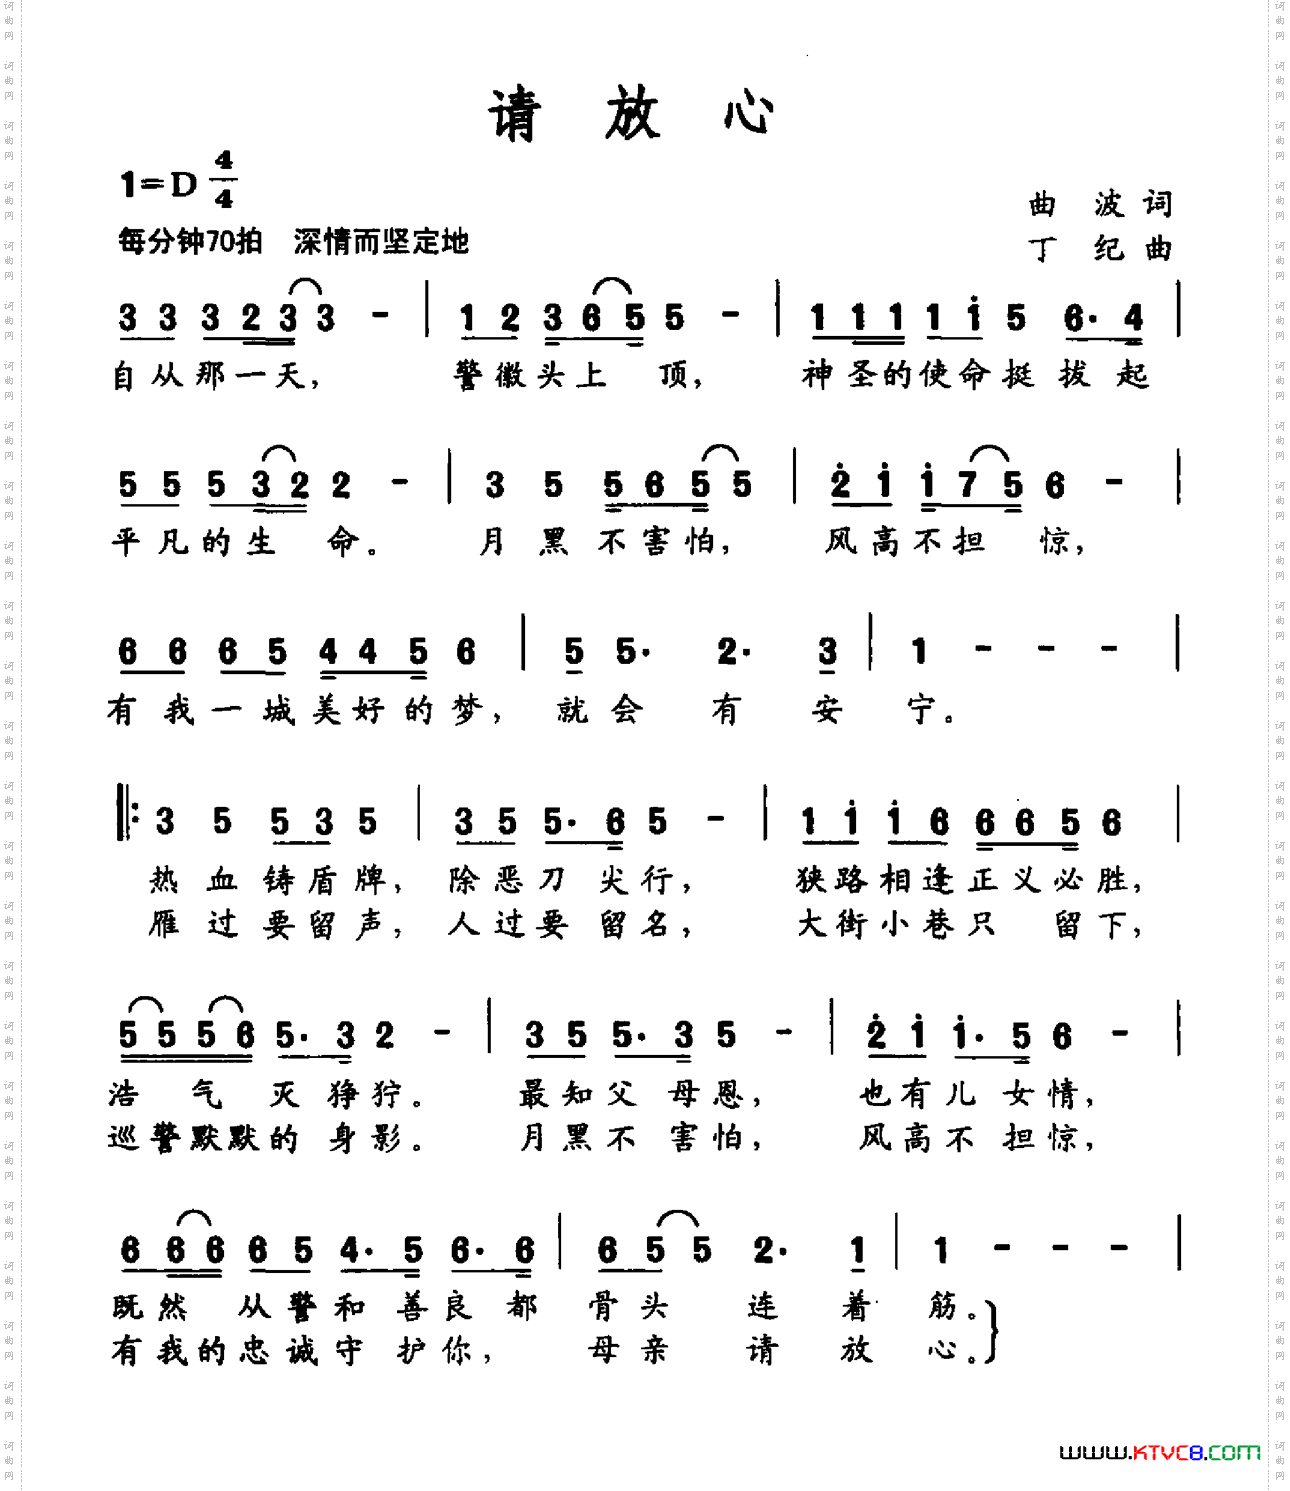 请放心
1=D 4/4
曲 波 词
每分钟70拍 深情而坚定地
丁 纪 曲
3 3 3 2 3 3 - | 1 2 3 6 5 5 - | 1 1 1 1 i 5 6· 4 |
自从那一天， 警徽头上 顶， 神圣的使命挺拔起
5 5 5 3 2 2 - | 3 5 5 6 5 5 | 2̇ i i 7 5 6 - |
平凡的生 命。 月黑不害怕， 风高不担 惊，
6 6 6 5 4 4 5 6 | 5 5· 2· 3 | 1 - - - |
有我一城美好的梦， 就会 有 安 宁。
‖: 3 5 5 3 5 | 3 5 5· 6 5 - | 1 i i 6 6 6 5 6 |
热血铸盾牌， 除恶刀尖行， 狭路相逢正义必胜，
雁过要留声， 人过要留名， 大街小巷只 留下，
5 5 5 6 5· 3 2 - | 3 5 5· 3 5 - | 2̇ i i· 5 6 - |
浩 气 灭狰狞。 最知父母恩， 也有儿女情，
巡警默默的身影。 月黑不害怕， 风高不担惊，
6 6 6 6 5 4· 5 6· 6 | 6 5 5 2· 1 | 1 - - - |
既然 从警和善良都 骨头 连 着 筋。
有我的忠诚守护你， 母亲 请 放 心。
www.KTVC8.com
词曲网